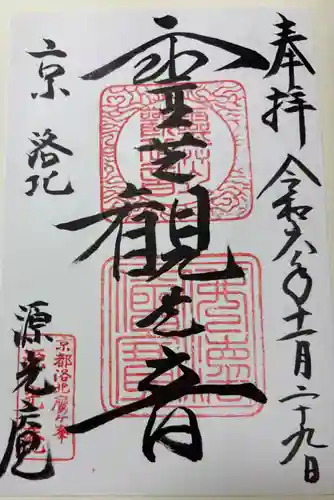 奉拝
令和六年十一月二十九日
霊芝観世音
京
洛北
京都洛北鷹ヶ峯
源光庵